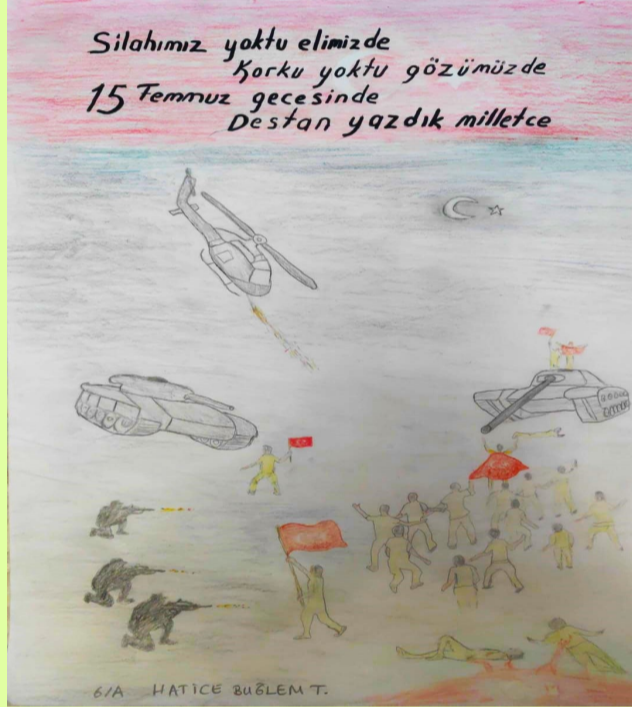 Silahımız yoktu elimizde
Korku yoktu gözümüzde
15 Temmuz gecesinde
Destan yazdık milletce
6/A HATİCE BUĞLEM T.